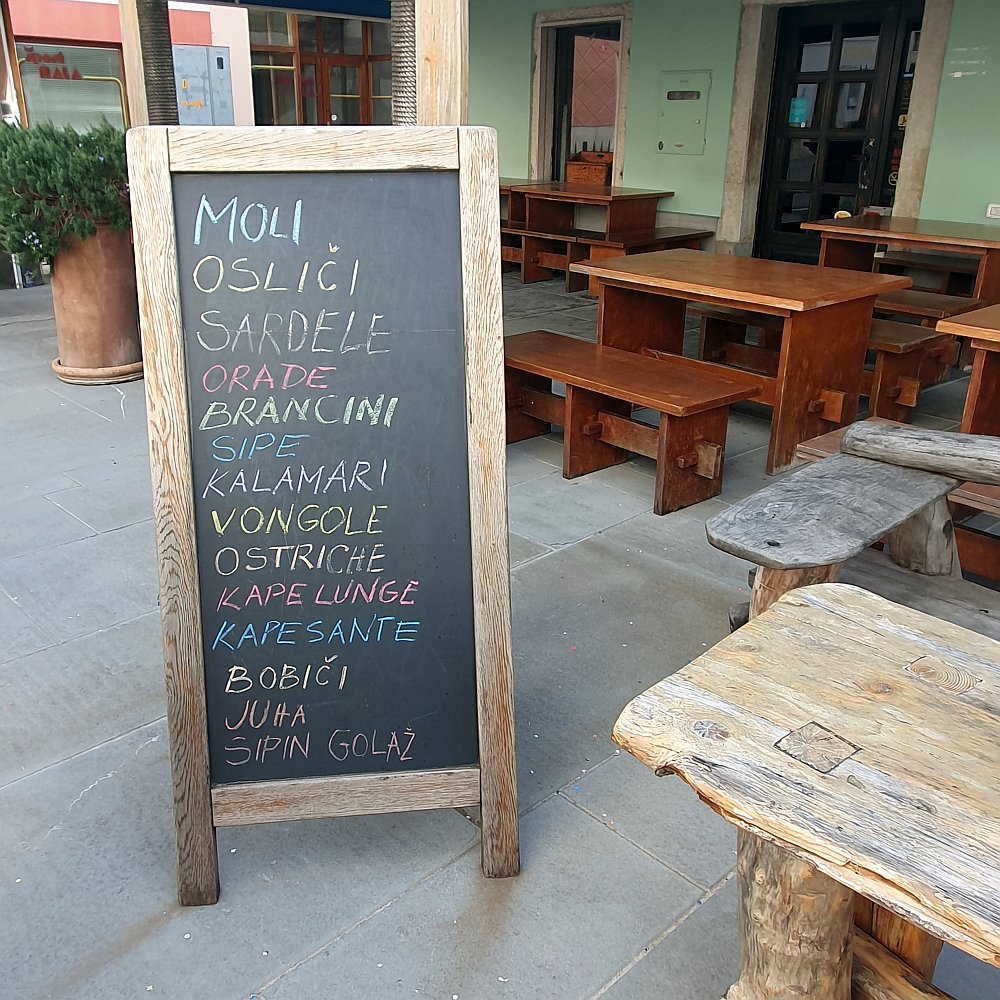 MOLI
OSLIČI
SARDELE
ORADE
BRANCINI
SIPE
KALAMARI
VONGOLE
OSTRICHE
KAPE LUNGE
KAPESANTE
BOBIČI
JUHA
SIPIN GOLAŽ